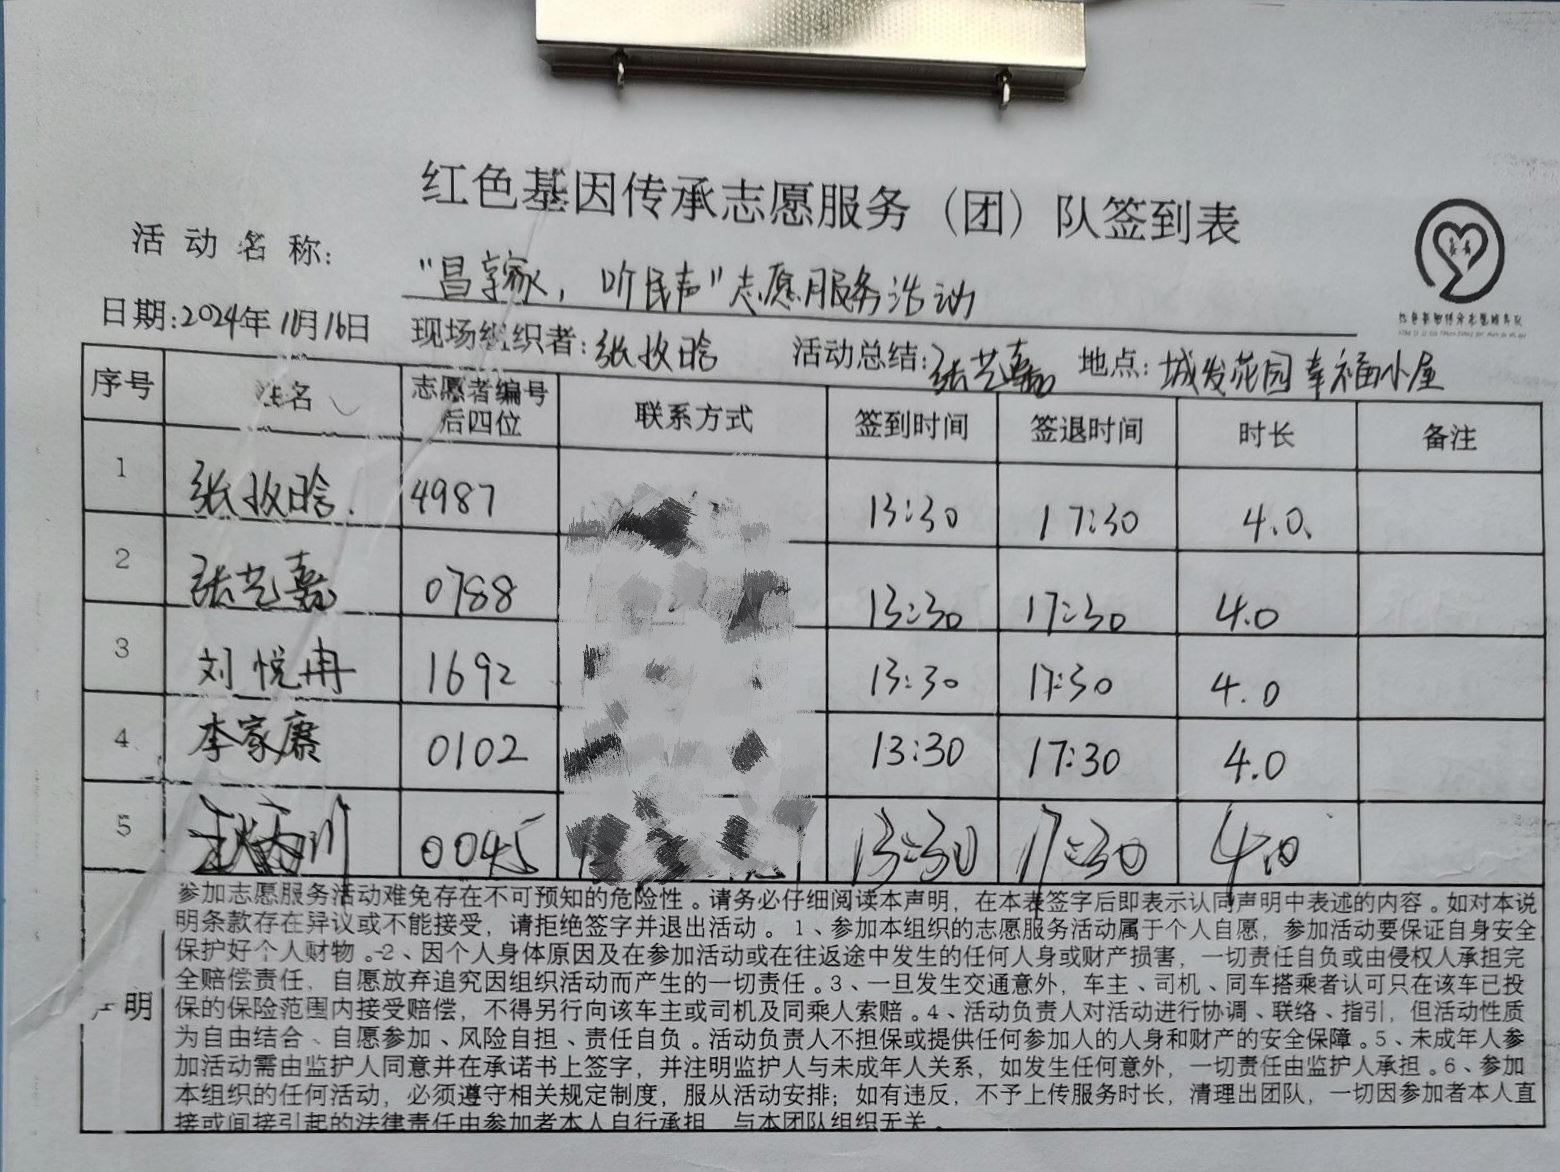 红色基因传承志愿服务（团）队签到表
活动名称：
"昌享家，听民声"志愿服务活动
日期：2024年11月16日 现场组织者：张牧晗 活动总结：张艺嘉 地点：城发花园幸福小屋
序号 姓名 志愿者编号后四位 联系方式 签到时间 签退时间 时长 备注
1 张牧晗. 4987 13:30 17:30 4.0、
2 张艺嘉 0788 13:30 17:30 4.0
3 刘悦冉 1692 13:30 17:30 4.0
4 李家赓 0102 13:30 17:30 4.0
5 0045 13:30 17:30 4.0
参加志愿服务活动难免存在不可预知的危险性。请务必仔细阅读本声明，在本表签字后即表示认同声明中表述的内容。如对本说
明条款存在异议或不能接受，请拒绝签字并退出活动。1、参加本组织的志愿服务活动属于个人自愿，参加活动要保证自身安全
保护好个人财物。2、因个人身体原因及在参加活动或在往返途中发生的任何人身或财产损害，一切责任自负或由侵权人承担完
全赔偿责任，自愿放弃追究因组织活动而产生的一切责任。3、一旦发生交通意外，车主、司机、同车搭乘者认可只在该车已投
声明 保的保险范围内接受赔偿，不得另行向该车主或司机及同乘人索赔。4、活动负责人对活动进行协调、联络、指引，但活动性质
为自由结合、自愿参加、风险自担、责任自负。活动负责人不担保或提供任何参加人的人身和财产的安全保障。5、未成年人参
加活动需由监护人同意并在承诺书上签字，并注明监护人与未成年人关系，如发生任何意外，一切责任由监护人承担。6、参加
本组织的任何活动，必须遵守相关规定制度，服从活动安排；如有违反，不予上传服务时长，清理出团队，一切因参加者本人直
接或间接引起的法律责任由参加者本人自行承担，与本团队组织无关。